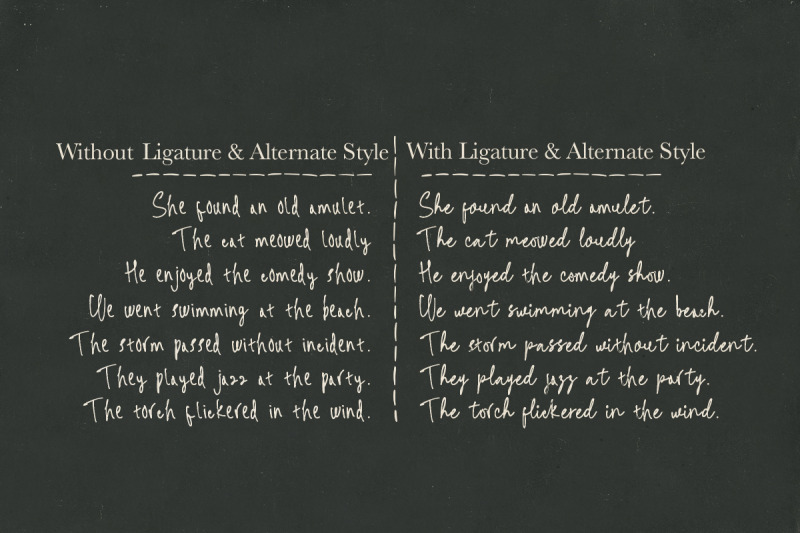 Without Ligature & Alternate Style
She found an old amulet.
The cat meowed loudly
He enjoyed the comedy show.
We went swimming at the beach.
The storm passed without incident.
They played jazz at the party.
The torch flickered in the wind.
With Ligature & Alternate Style
She found an old amulet.
The cat meowed loudly
He enjoyed the comedy show.
We went swimming at the beach.
The storm passed without incident.
They played jazz at the party.
The torch flickered in the wind.